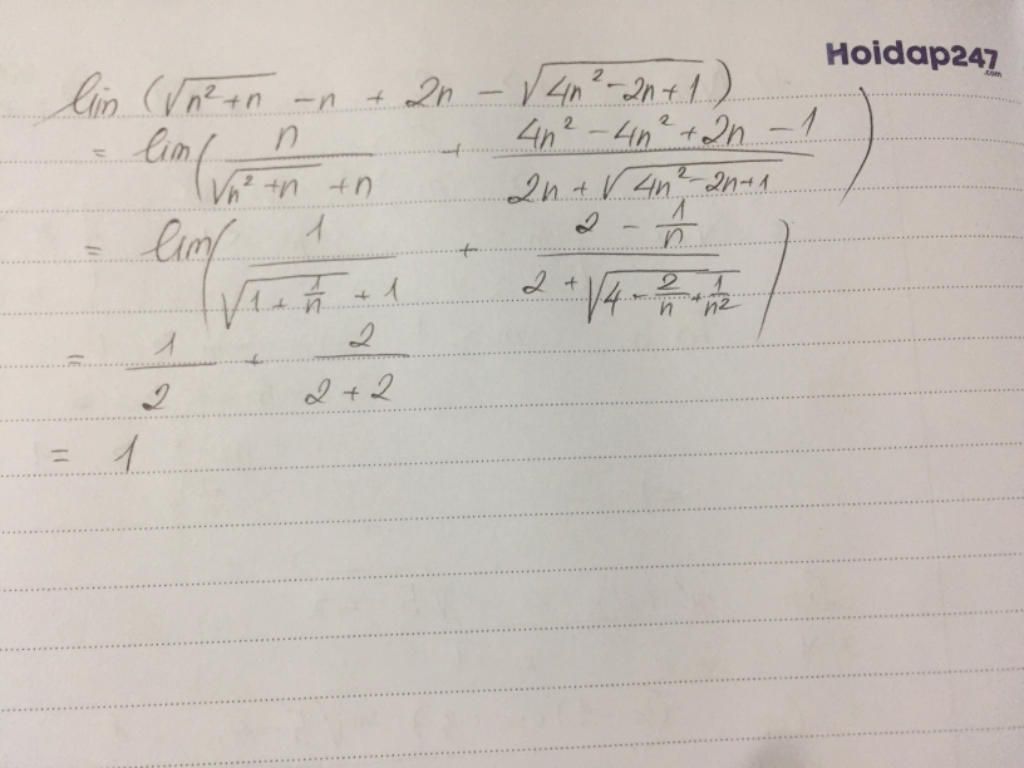 Hoidap247
.com
lim (√(n² + n) - n + 2n - √(4n² - 2n + 1))
= lim( n / (√(n² + n) + n) + (4n² - 4n² + 2n - 1) / (2n + √(4n² - 2n + 1)) )
= lim( 1 / (√(1 + 1/n) + 1) + (2 - 1/n) / (2 + √(4 - 2/n + 1/n²)) )
= 1/2 + 2/(2 + 2)
= 1